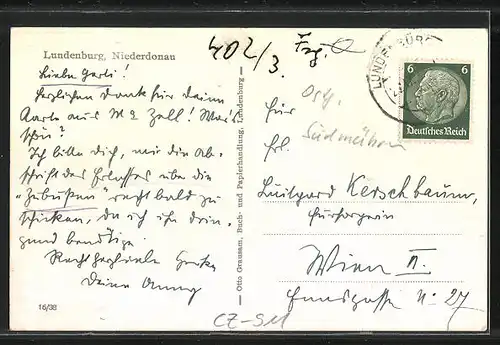 Lundenburg, Niederdonau
402/3.
Liebe Gerli!
Herzlichen Dank für Deine
Karte aus M Zell! War's
schön?
Ich bitte Dich, mir die Ab-
schrift des Erlasses über die
"Zubußen" recht bald zu
schicken, da ich ihn drin-
gend benötige.
Recht herzliche
Deine
16/38
Otto Grausam, Buch- und Papierhandlung, Lundenburg
LUNDENBURG
6 6
Deutsches Reich
Ostg.
Südmähren
Für
Frl.
Luitgard Kerschbaum,
Fürsorgerin
Wien II.
gasse No 27
CZ-SM